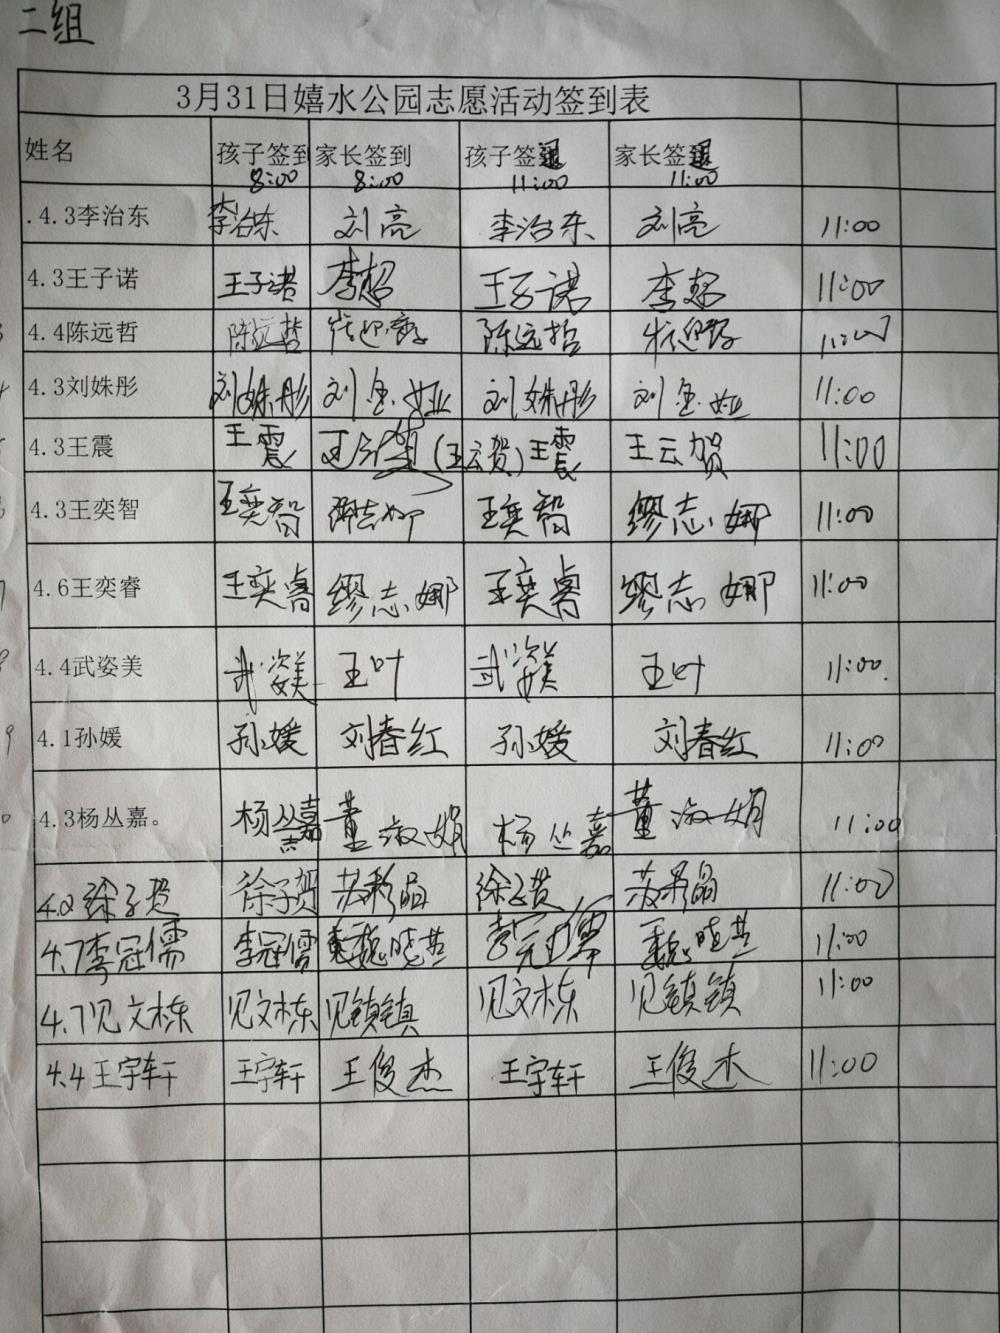 二组
3月31日嬉水公园志愿活动签到表
姓名 孩子签到 8:00 家长签到 8:00 孩子签退 11:00 家长签退 11:00
.4.3李治东 李治东 刘亮 李治东 刘亮 11:00
4.3王子诺 王子诺 李超 王子诺 李超 11:00
4.4陈远哲 陈远哲 陈远哲 11:00
4.3刘姝彤 刘姝彤 刘金娅 刘姝彤 刘金娅 11:00
4.3王震 王震 (王云贺) 王震 王云贺 11:00
4.3王奕智 王奕智 缪志娜 王奕智 缪志娜 11:00
4.6王奕睿 王奕睿 缪志娜 王奕睿 缪志娜 11:00
4.4武姿美 武姿美 王叶 武姿美 王叶 11:00
4.1孙媛 孙媛 刘春红 孙媛 刘春红 11:00
4.3杨丛嘉。 杨丛嘉 董淑娟 杨丛嘉 董淑娟 11:00
4.2徐子贺 徐子贺 苏彩晶 徐子贺 苏彩晶 11:00
4.7李冠儒 李冠儒 魏晓芸 李冠儒 魏晓芸 11:00
4.7见文栋 见文栋 见镇镇 见文栋 见镇镇 11:00
4.4王宇轩 王宇轩 王俊杰 王宇轩 王俊杰 11:00